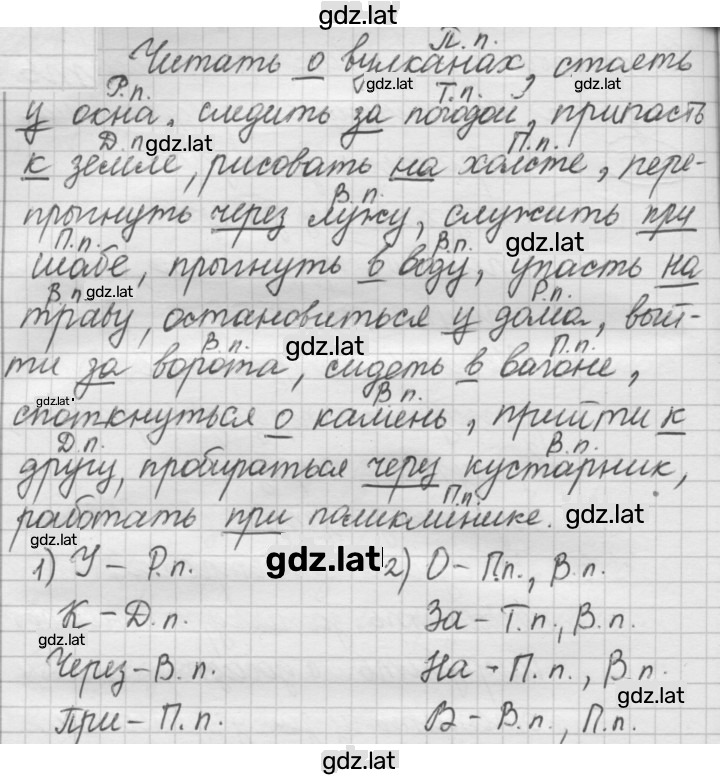 gdz.lat
П. п.
Читать о вулканах, стоять
gdz.lat gdz.lat
Р. п. Т. п.
у окна, следить за погодой, припасть
Д. п. gdz.lat П. п.
к земле, рисовать на холсте, пере-
В. п.
прыгнуть через лужу, служить при
П. п. В. п. gdz.lat
штабе, прыгнуть в воду, упасть на
В. п. gdz.lat Р. п.
траву, остановиться у дома, вый-
В. п. gdz.lat П. п.
ти за ворота, сидеть в вагоне,
gdz.lat В п.
споткнуться о камень, прийти к
Д. п. В. п.
другу, пробираться через кустарник,
П. п.
работать при поликлинике. gdz.lat
1) У – Р. п. gdz.lat 2) О – П. п., В. п.
К – Д. п. За – Т. п., В. п.
gdz.lat
Через – В. п. На – П. п., В. п.
gdz.lat
При – П. п. В – В. п., П. п.
gdz.lat